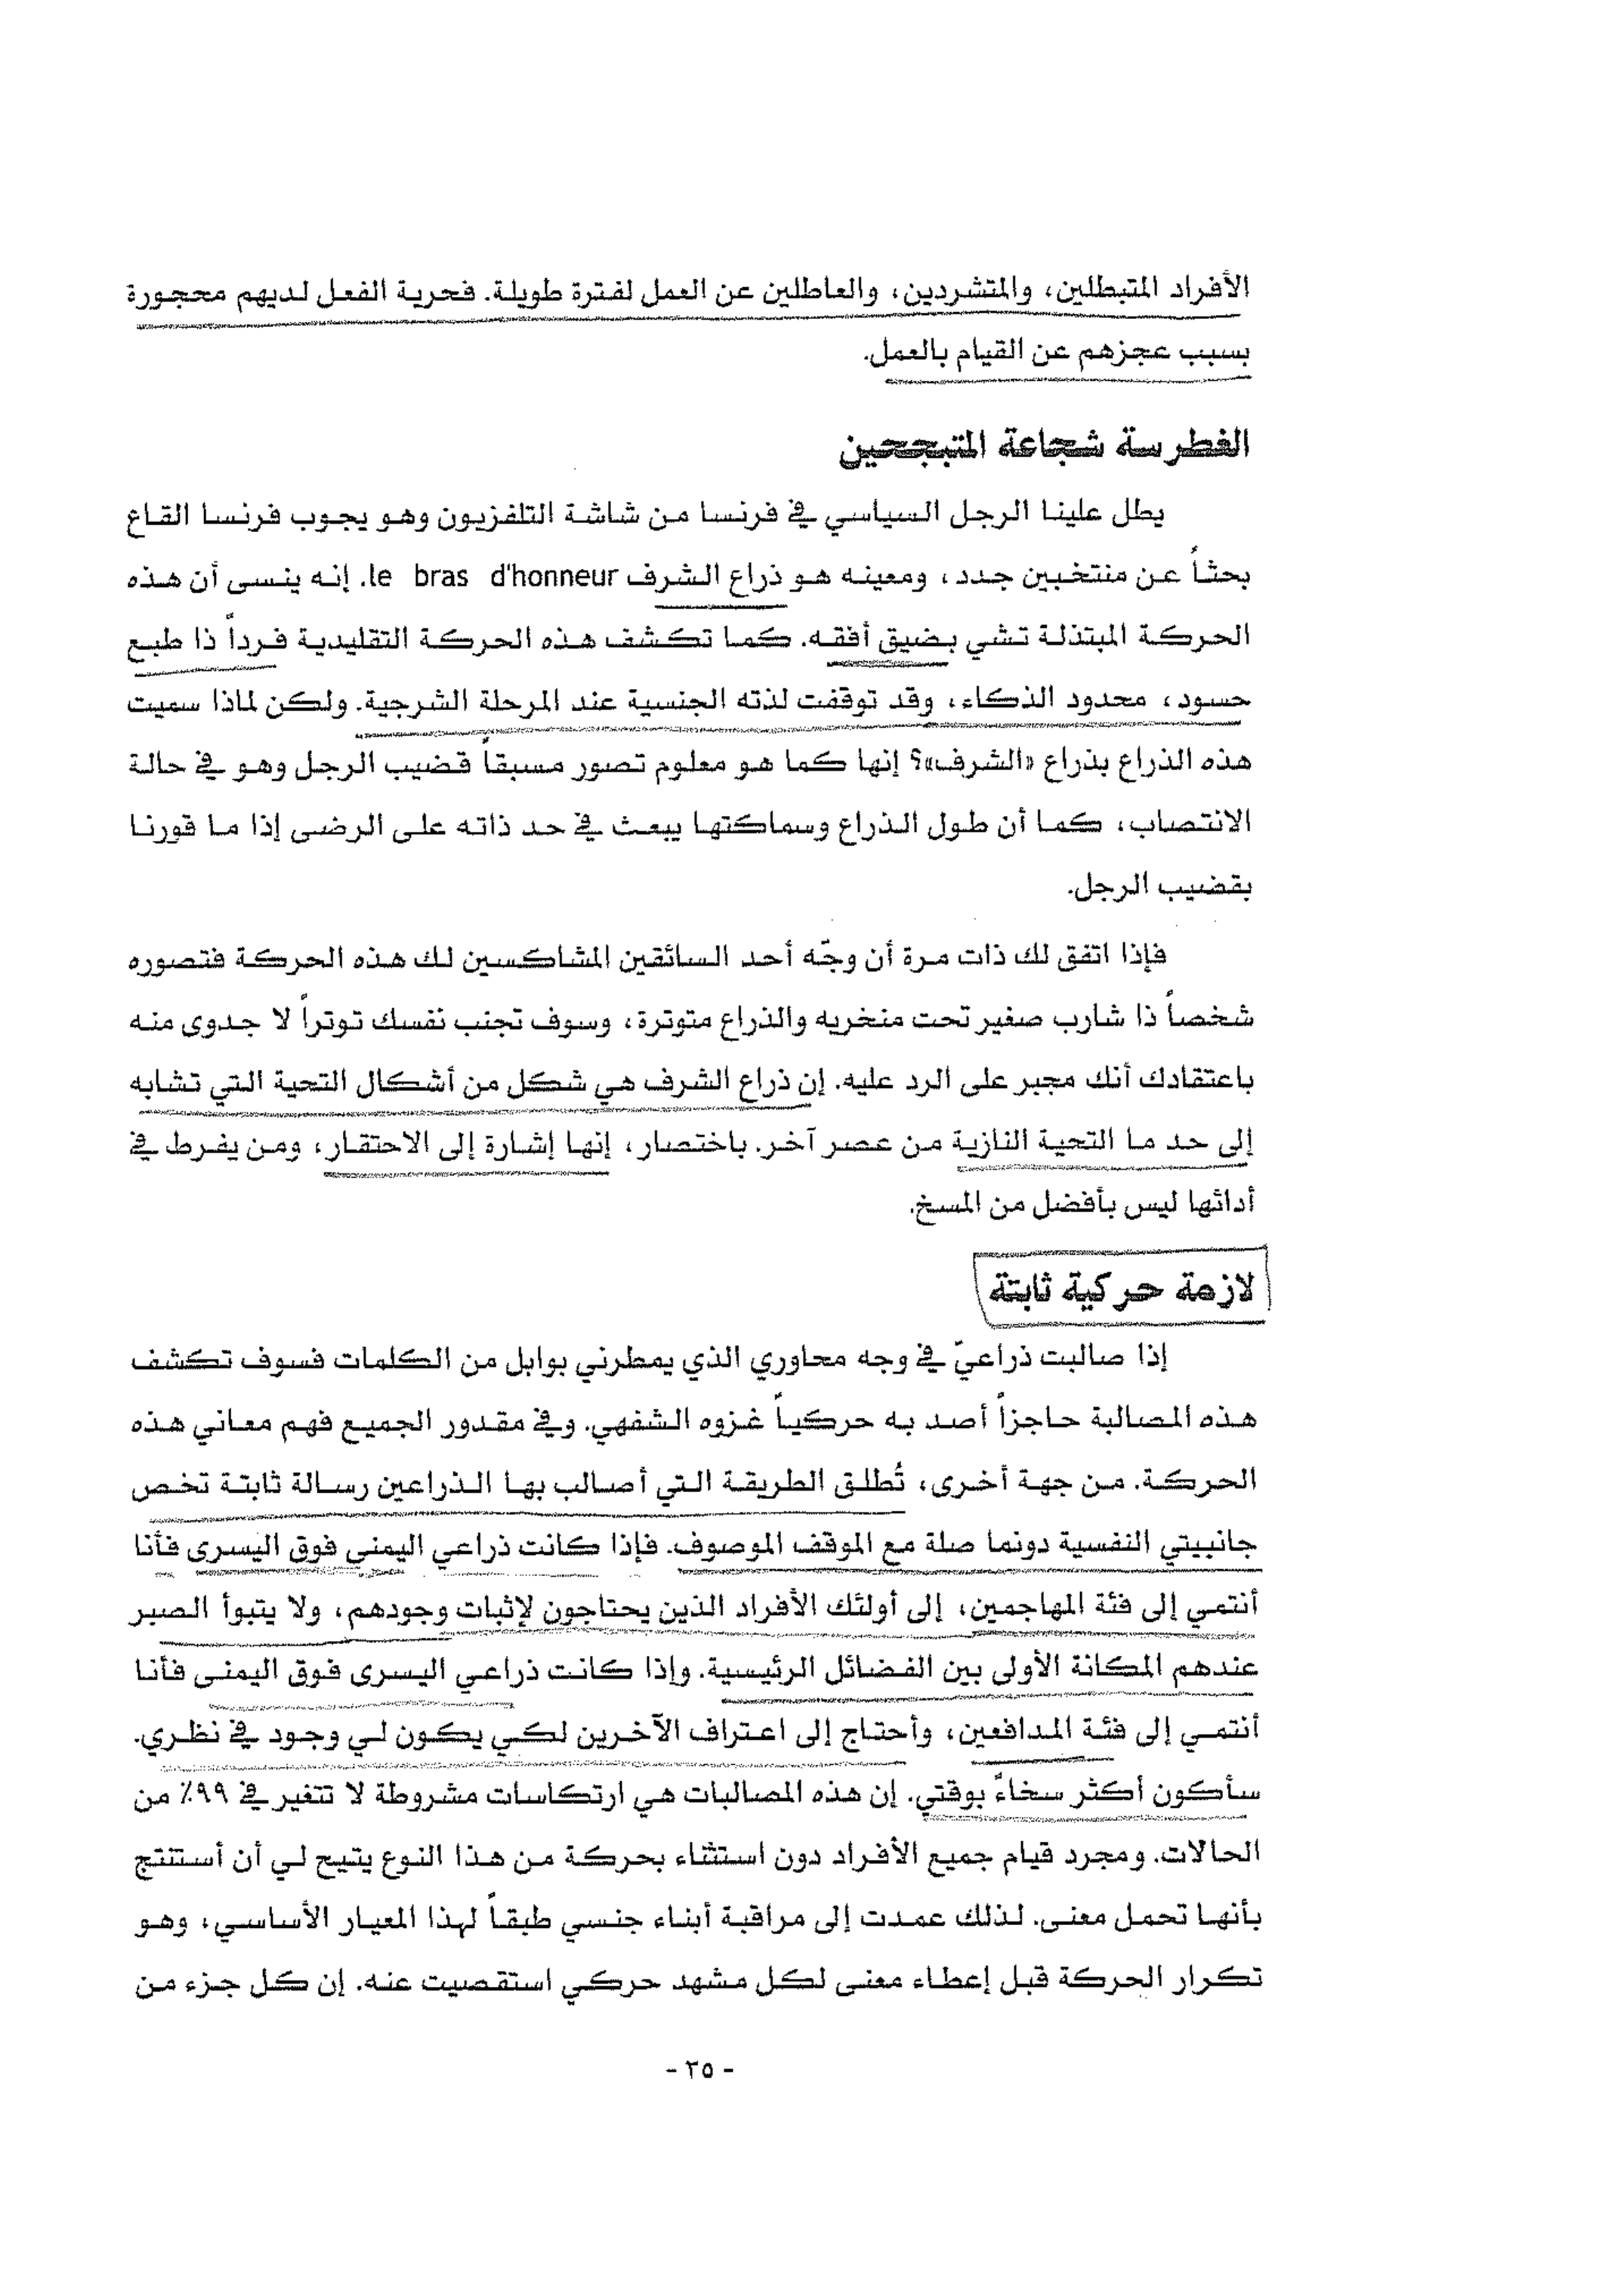 الأفراد المتبطلين، والمتشردين، والعاطلين عن العمل لفترة طويلة. فحرية الفعل لديهم محجورة
بسبب عجزهم عن القيام بالعمل.
الغطرسة شجاعة المتبجحين
يطل علينا الرجل السياسي في فرنسا من شاشة التلفزيون وهو يجوب فرنسا القاع
بحثاً عن منتخبين جدد، ومعينه هو ذراع الشرف le bras d'honneur. إنه ينسى أن هذه
الحركة المبتذلة تشي بضيق أفقه. كما تكشف هذه الحركة التقليدية فرداً ذا طبع
حسود، محدود الذكاء، وقد توقفت لذته الجنسية عند المرحلة الشرجية. ولكن لماذا سميت
هذه الذراع بذراع «الشرف»؟ إنها كما هو معلوم تصور مسبقاً قضيب الرجل وهو في حالة
الانتصاب، كما أن طول الذراع وسماكتها يبعث في حد ذاته على الرضى إذا ما قورنا
بقضيب الرجل.
فإذا اتفق لك ذات مرة أن وجّه أحد السائقين المشاكسين لك هذه الحركة فتصوره
شخصاً ذا شارب صغير تحت منخريه والذراع متوترة، وسوف تجنب نفسك توتراً لا جدوى منه
باعتقادك أنك مجبر على الرد عليه. إن ذراع الشرف هي شكل من أشكال التحية التي تشابه
إلى حد ما التحية النازية من عصر آخر. باختصار، إنها إشارة إلى الاحتقار، ومن يفرط في
أدائها ليس بأفضل من المسخ.
لازمة حركية ثابتة
إذا صالبت ذراعيّ في وجه محاوري الذي يمطرني بوابل من الكلمات فسوف تكشف
هذه المصالبة حاجزاً أصد به حركياً غزوه الشفهي. وفي مقدور الجميع فهم معاني هذه
الحركة. من جهة أخرى، تُطلق الطريقة التي أصالب بها الذراعين رسالة ثابتة تخص
جانبيتي النفسية دونما صلة مع الموقف الموصوف. فإذا كانت ذراعي اليمنى فوق اليسرى فأنا
أنتمي إلى فئة المهاجمين، إلى أولئك الأفراد الذين يحتاجون لإثبات وجودهم، ولا يتبوأ الصبر
عندهم المكانة الأولى بين الفضائل الرئيسية. وإذا كانت ذراعي اليسرى فوق اليمنى فأنا
أنتمي إلى فئة المدافعين، وأحتاج إلى اعتراف الآخرين لكي يكون لي وجود في نظري.
سأكون أكثر سخاءً بوقتي. إن هذه المصالبات هي ارتكاسات مشروطة لا تتغير في ٩٩٪ من
الحالات. ومجرد قيام جميع الأفراد دون استثناء بحركة من هذا النوع يتيح لي أن أستنتج
بأنها تحمل معنى. لذلك عمدت إلى مراقبة أبناء جنسي طبقاً لهذا المعيار الأساسي، وهو
تكرار الحركة قبل إعطاء معنى لكل مشهد حركي استقصيت عنه. إن كل جزء من
- ٢٥ -